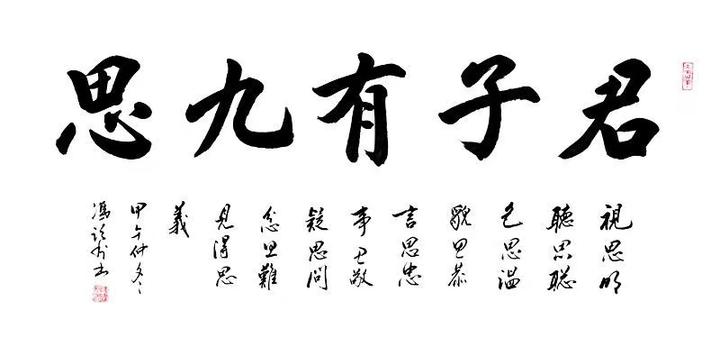 君子有九思
視思明
聽思聰
色思溫
貌思恭
言思忠
事思敬
疑思問
忿思難
見得思
義
甲午仲冬
馮